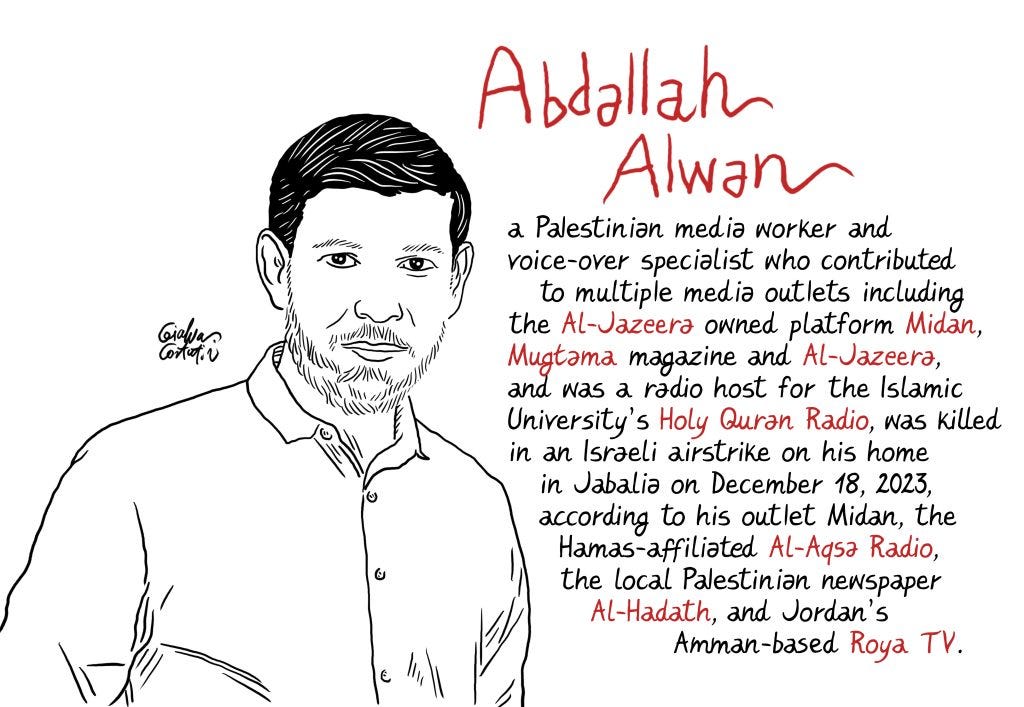 Abdallah
Alwan
a Palestinian media worker and
voice-over specialist who contributed
to multiple media outlets including
the Al-Jazeera owned platform Midan,
Mugtama magazine and Al-Jazeera,
and was a radio host for the Islamic
University's Holy Quran Radio, was killed
in an Israeli airstrike on his home
in Jabalia on December 18, 2023,
according to his outlet Midan, the
Hamas-affiliated Al-Aqsa Radio,
the local Palestinian newspaper
Al-Hadath, and Jordan's
Amman-based Roya TV.